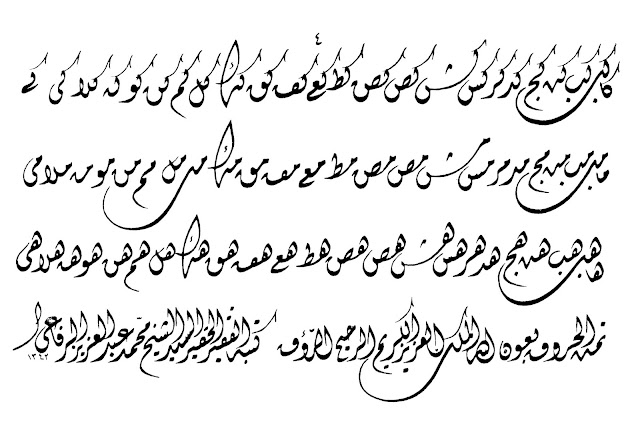 كا كب كج كد كر كس كش كص كص كط كع كف كق كك كل كم كن كو كه كلا كى كے
ما مب مج مد مر مس مش مص مص مط مع مف مق مك مل مم من مو مه ملا مى
ها هب هج هد هر هس هش هص هص هط هع هف هق هك هل هم هن هو هه هلا هى
تمت الحروف بعون الله الملك العزيز الكريم الرحيم الرؤف كتبه الفقير الحقير السيد الشيخ محمد عبد العزيز الرفاعي ١٣٤٢